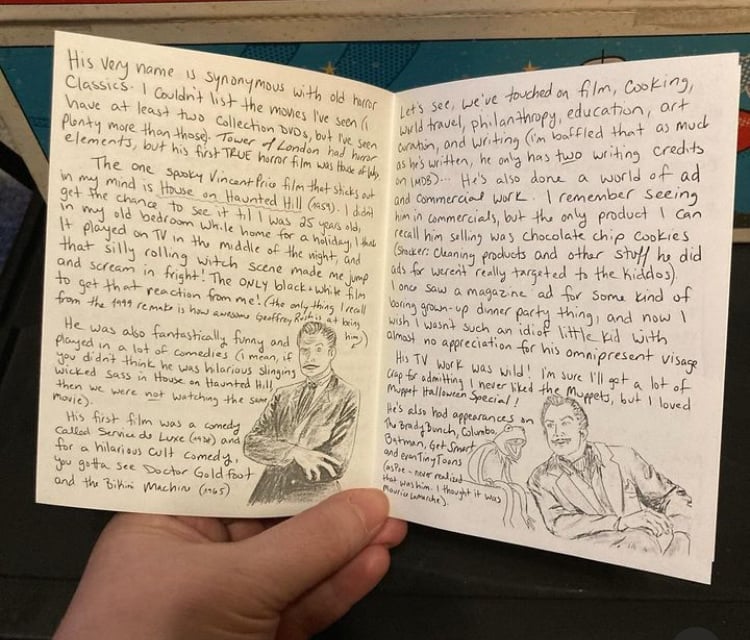 His very name is synonymous with old horror
Classics. I couldn't list the movies I've seen (i
have at least two collection DVDs, but I've seen
plenty more than those). Tower of London had horror
elements, but his first TRUE horror film was House of Wax.
The one spooky Vincent Price film that sticks out
in my mind is House on Haunted Hill (1959). I didn't
get the chance to see it til I was 25 years old,
in my old bedroom while home for a holiday, I think
It played on TV in the middle of the night, and
that silly rolling witch scene made me jump
and scream in fright! The ONLY black + white film
to get that reaction from me! (the only thing I recall
from the 1999 remake is how awesome Geoffrey Rush is at being
him)
He was also fantastically funny and
played in a lot of comedies (i mean, if
you didn't think he was hilarious slinging
wicked sass in House on Haunted Hill,
then we were not watching the same
movie).
His first film was a comedy
called Service de Luxe (1938) and
for a hilarious cult comedy,
you gotta see Doctor Goldfoot
and the Bikini Machine (1965)
Let's see, we've touched on film, cooking,
world travel, philanthropy, education, art
curation, and writing (i'm baffled that as much
as he's written, he only has two writing credits
on IMDB)... He's also done a world of ad
and commercial work. I remember seeing
him in commercials, but the only product I can
recall him selling was chocolate chip cookies
(shocker: cleaning products and other stuff he did
ads for weren't really targeted to the kiddos).
I once saw a magazine ad for some kind of
boring grown-up dinner party thing, and now I
wish I wasn't such an idiot little kid with
almost no appreciation for his omnipresent visage
His TV work was wild! I'm sure I'll get a lot of
crap for admitting I never liked the Muppets, but I loved
Muppet Halloween Special!
He's also had appearances on
The Brady Bunch, Columbo,
Batman, Get Smart
and even Tiny Toons
(as Poe - never realized
that was him. I thought it was
Maurice Lamarche).